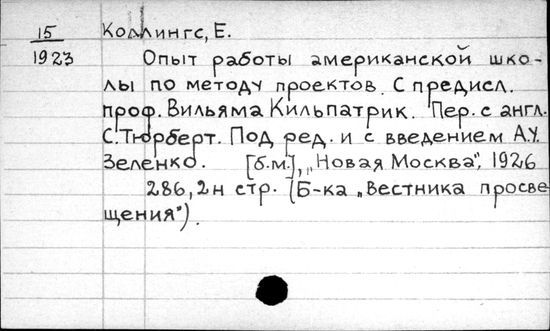 15
1923
Коллингс, Е.
Опыт работы американской шко-
лы по методу проектов. С предисл.
проф. Вильяма Кильпатрик. Пер. с англ.
С. Тюрберт. Под ред. и с введением А.У.
Зеленко. [б.м.], „Новая Москва", 1926
286, 2н стр. (Б-ка „Вестника просве-
щения").